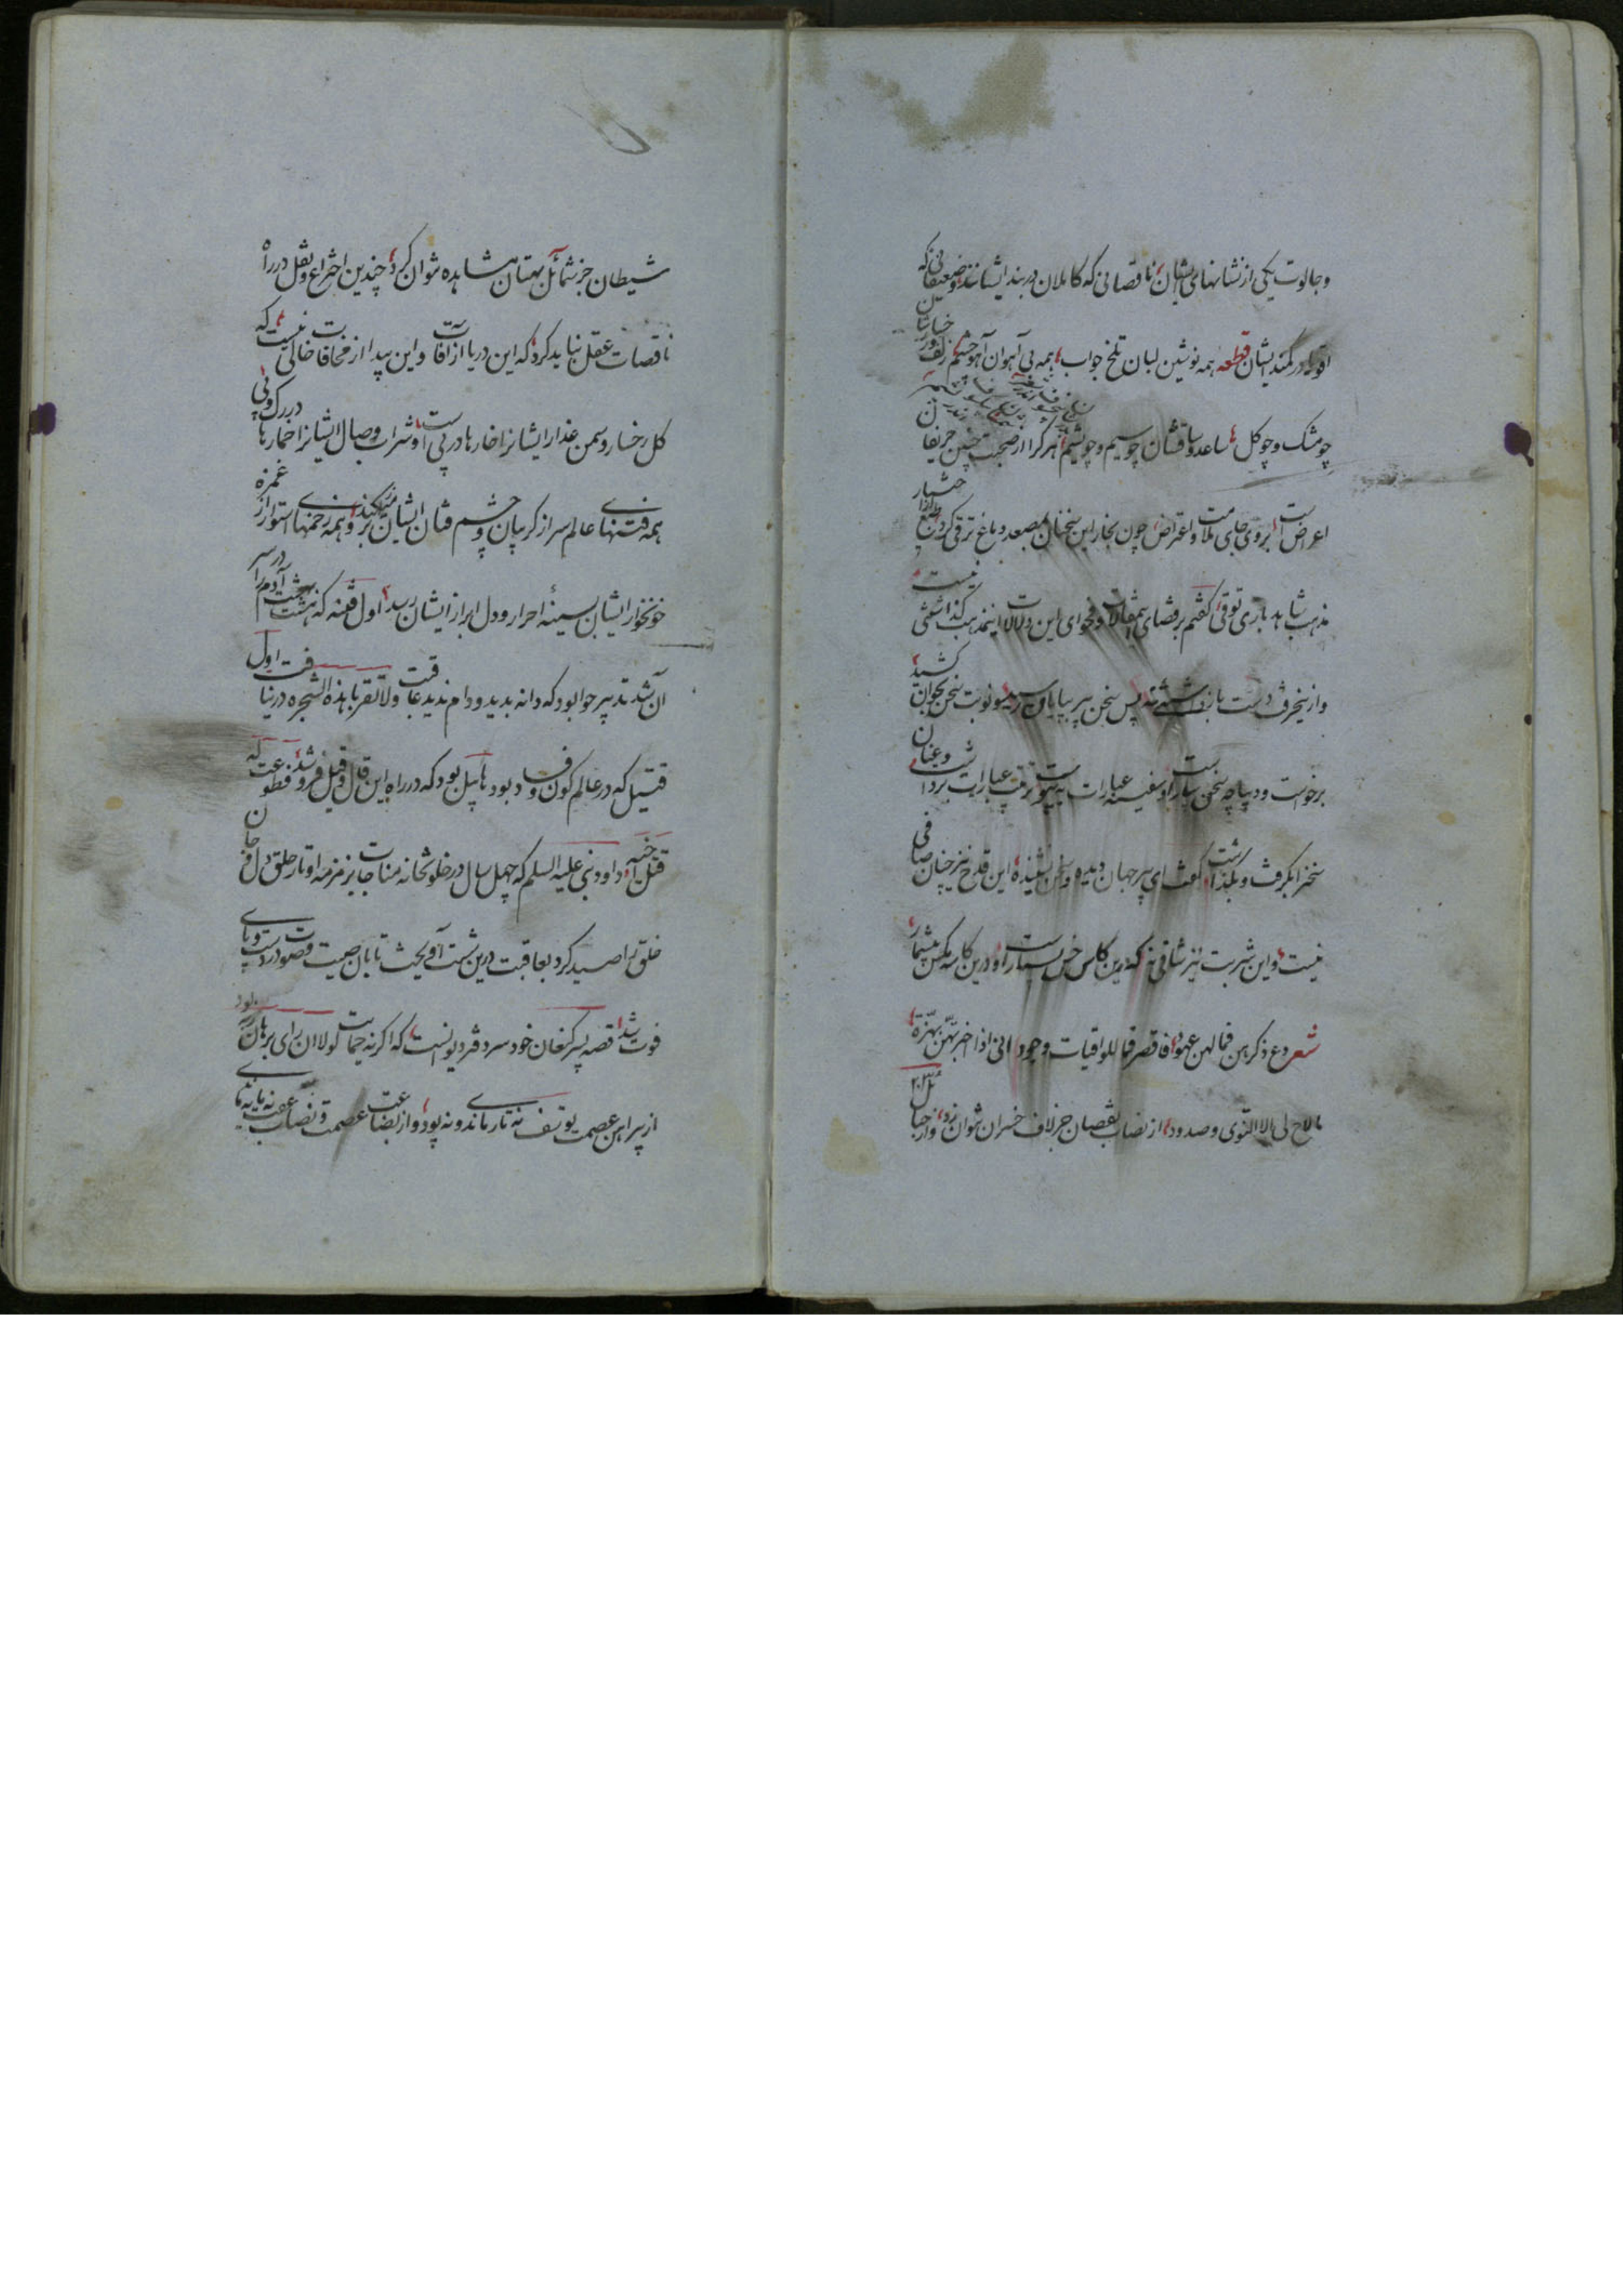 وجالوت یکی از نشانهای ایشان ناقصانی که کاملان در بند ایشانند وضعیفانی که
اقویا در کمند ایشان قطعه همه نوشین لبان تلخ جواب همه بی آهوان آهو چشم زلف ورخسارشان
چو مشک و چو کل ساعد و ساقشان چو سیم و چو یشم هر کرا از صحبت چنین حریفان
اعراض است بر وی جای ملامت و اعتراض چون بخار این سخنان بمصعد دماغ ترقی کرد
مذهب شاهد بازی توقی کفتم بر قضای این مقالات و فحوای این دلالات اینمذهب کذاشتنی نیست
وازین حرف دست باز داشتنی نه پس سخن پیر بپایان رسید و نوبت سخن بجوان کشید
برخواست و دیباچه سخن بیاراست و سفینه عبارات به ترتیب عبارات برداشت و عنان
سخن را بکرفت و بکذاشت کفت ای پیر جهان دیده و سخن شنیده این قدح نیز چنان صافی
نیست و این شربت نیز شافی نه که درین کاس خس بسیار است و درین کاسه مکس بیشمار
شعر دع ذکرهن فما لهن عهود فاقصر فما للواقیات وجود انی اذا اخبرتهن بهزة
مالاح لی الا النوی وصدود از نصاب نقصان جز لاف خسران نتوان زد و از خیال
شیطان جز شمائل بهتان مشاهده نتوان کرد چندین اختراع و نقل در راه
ناقصات عقل نباید کرد که این دریا از آفات و این بیدا از مخافات خالی نیست که
کل رخسار و سمن عذار ایشانرا خارها در پی است و شراب وصال ایشانرا خمارها در رک و پی
همه فتنهای عالم سر از کریبان چشم فتان ایشان بر میکند و همه زخمهای استوار از غمزه
خونخوار ایشان بسینهٔ احرار و دل ابرار ایشان رسد اول فتنه که بهشت آدم را در سر
آن شد تدبیر حوا بود که دانه بدید و دام ندید عاقبت ولا تقربا هذه الشجره در نیافت اول
قتیل که در عالم کون و فساد بود هابیل بود که در راه این قال و قیل فرو شد و قطوعت له
قتل اخیه داود نبی علیه السلم که چهل سال در خلوتخانه مناجات بزمزمه اوتار حلق دل و جان
خلق را صید کرد بعاقبت درین شست آویخت تا بان صیت و صوت در دست و پای
فوت شد قصه پسر کنعان خود سرد فتر دیوانست که اکر نه حمایت لولا ان رای برهان ربه بود
از پیراهن عصمت یوسف نه تار ماندی و نه پود و از بضاعت عصمت و نصاب عفت نه مایه ماندی